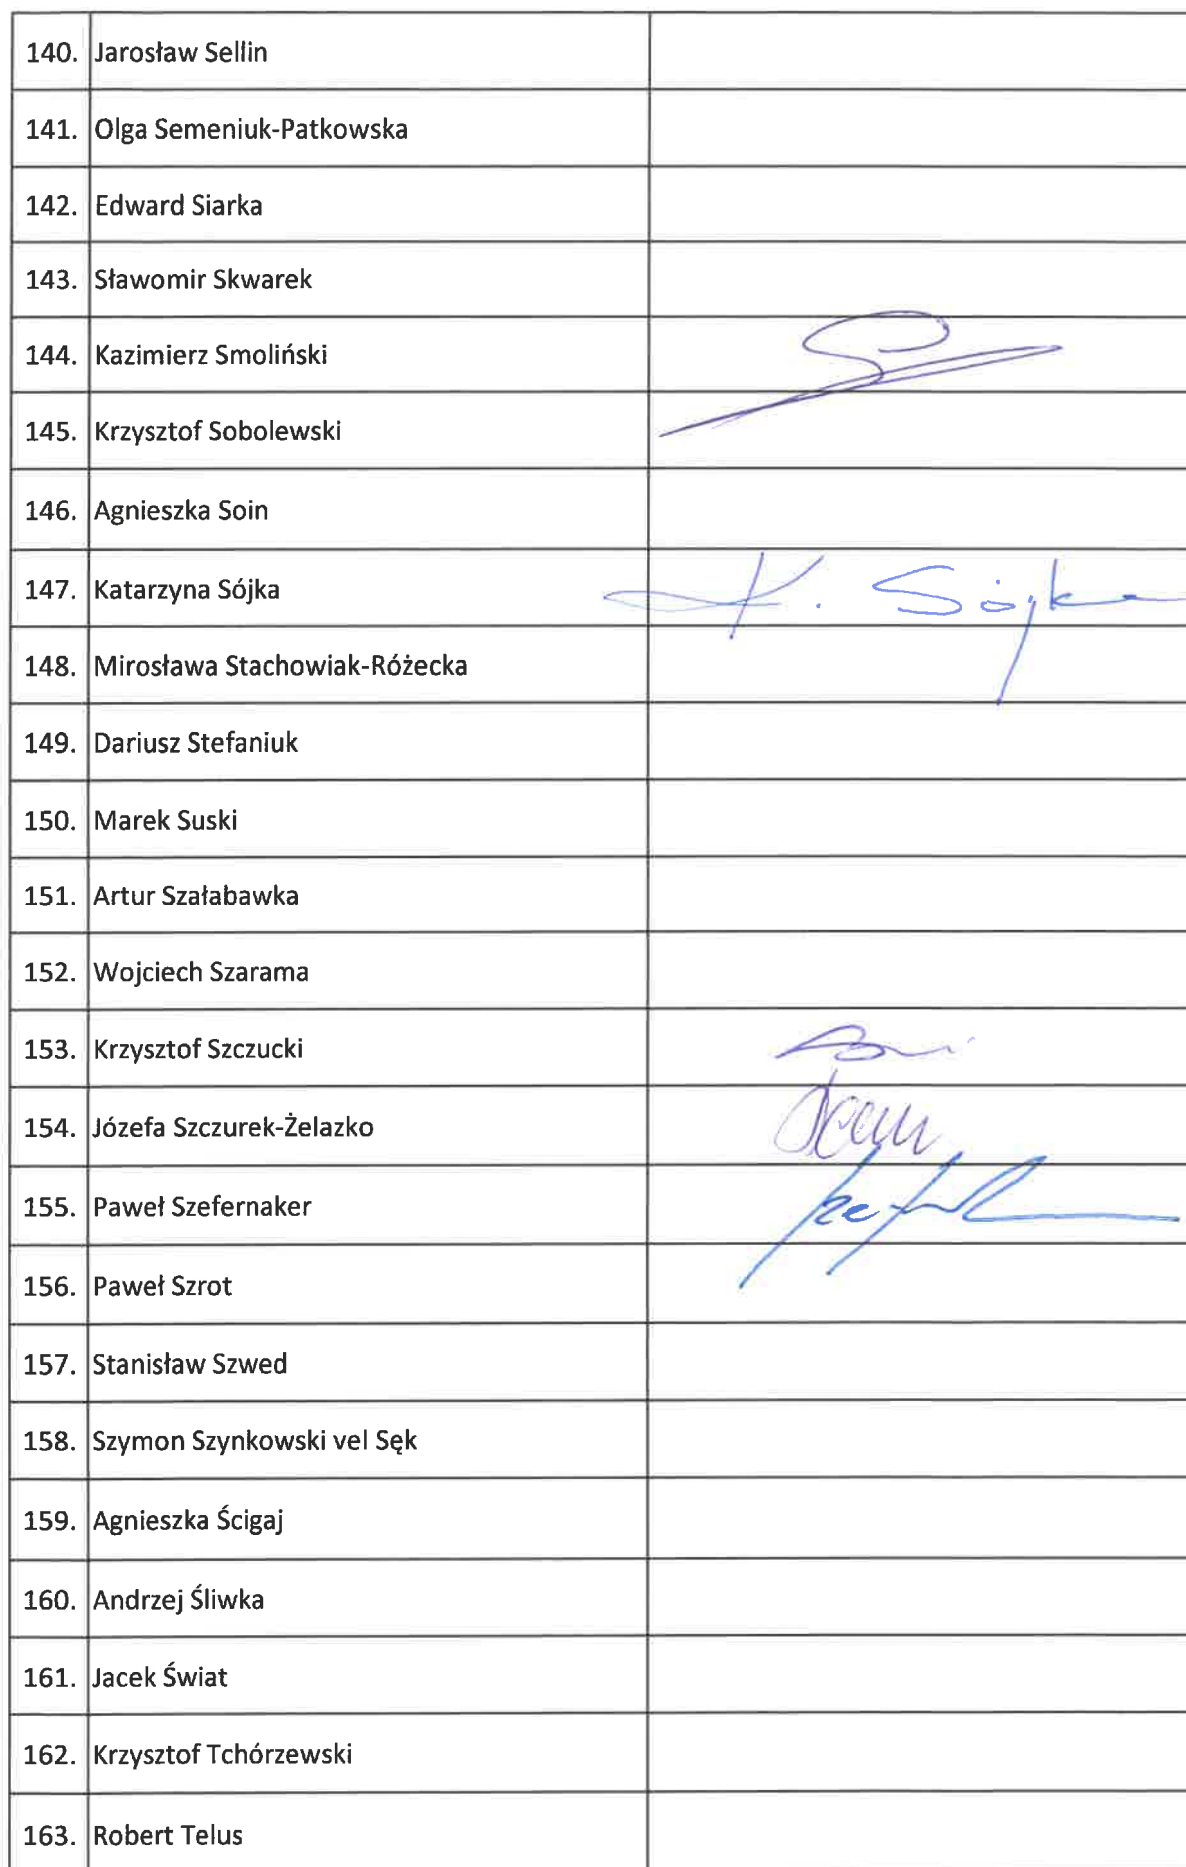 140. Jarosław Sellin
141. Olga Semeniuk-Patkowska
142. Edward Siarka
143. Sławomir Skwarek
144. Kazimierz Smoliński
145. Krzysztof Sobolewski
146. Agnieszka Soin
147. Katarzyna Sójka K. Sójka
148. Mirosława Stachowiak-Różecka
149. Dariusz Stefaniuk
150. Marek Suski
151. Artur Szałabawka
152. Wojciech Szarama
153. Krzysztof Szczucki
154. Józefa Szczurek-Żelazko
155. Paweł Szefernaker
156. Paweł Szrot
157. Stanisław Szwed
158. Szymon Szynkowski vel Sęk
159. Agnieszka Ścigaj
160. Andrzej Śliwka
161. Jacek Świat
162. Krzysztof Tchórzewski
163. Robert Telus